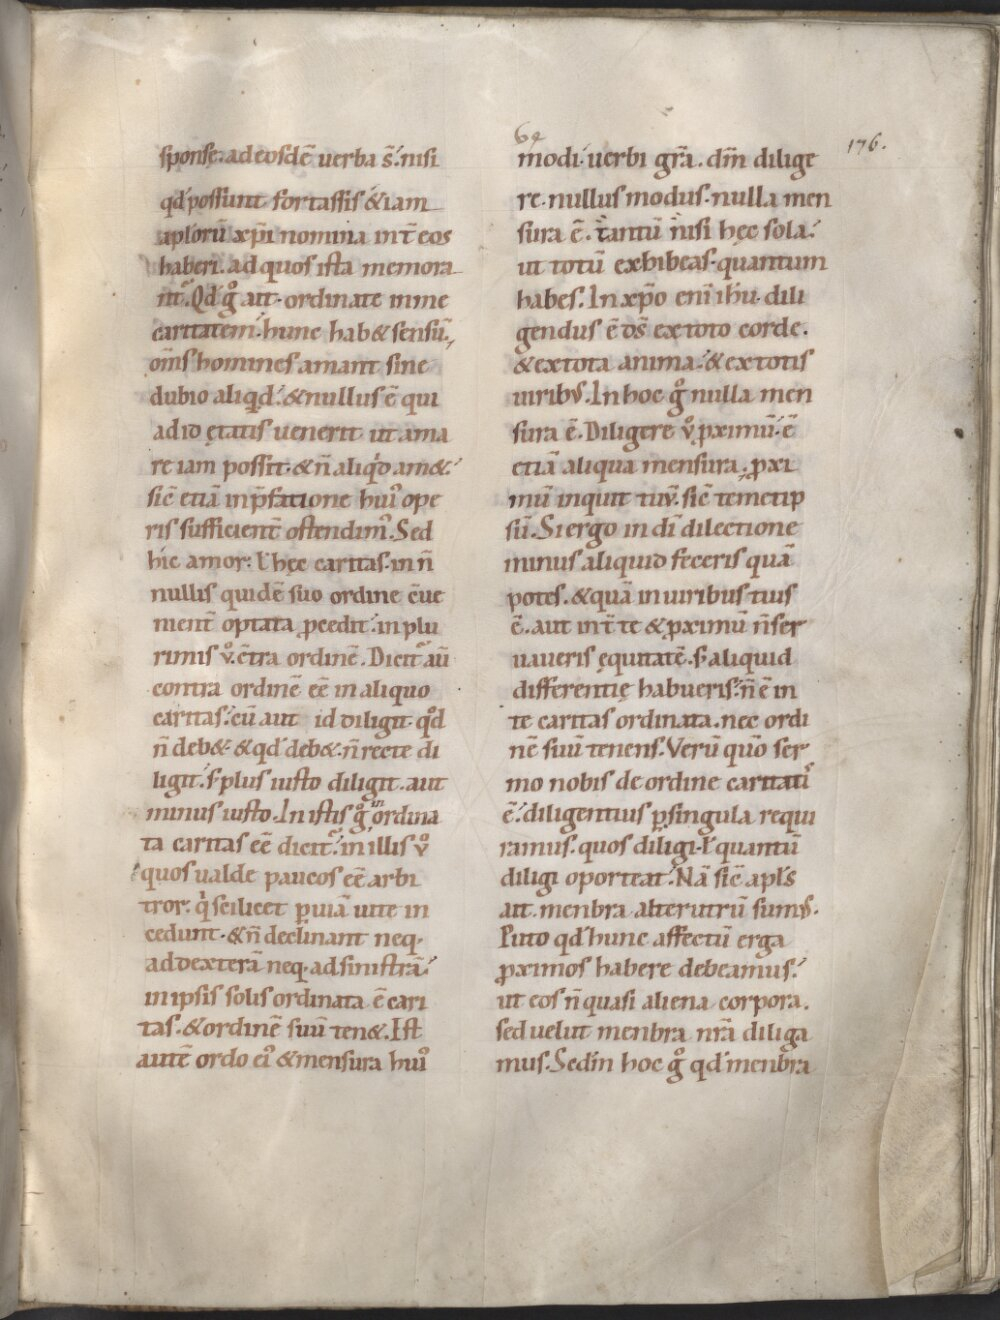 sponsę. ad eosdē uerba s̄. nisi
qd́ possunt fortassis & iam
aplorū xp̄i nomina int̄ eos
haberi. ad quos ista memora
nt᷑. Qd́ g̊ ait. ordinate in me
caritatem. hunc hab& sensū.
om̄s homines amant sine
dubio aliqd. & nullus ē qui
ad id ętatis uenerit ut ama
re iam possit. & ñ aliqd am&.
sic̄ etiā in p̄fatione hui᾽ ope
ris sufficient̄ ostendim᾽. Sed
hic amor. ł hęc caritas. in ñ
nullis quidē suo ordine c̄ue
nient̄ optata ꝓcedit. in plu
rimis v̊. c̄tra ordinē. Dicit᷑ aū
contra ordinē eē in aliquo
caritas. cū aut id diligit qd
ñ deb&. & qd́ deb&. ñ recte di
ligit. s; plus iusto diligit. aut
minus iusto. In istis g̊ inordina
ta caritas eē dicit᷑. in illis v̊
quos ualde paucos eē arbi
tror. qi scilicet ꝑ uiā uite in
cedunt. & ñ declinant neq.
ad dexterā neq. ad sinistrā.
in ipsis solis ordinata ē cari
tas. & ordinē suū ten&. Est
autē ordo ei᾽ & mensura hui᾽
64
176.
modi. uerbi gr̄a. dm̄ dilige
re. nullus modus. nulla men
sura ē. tantū nisi hęc sola.
ut totū exhibeas. quantum
habes. In xp̄o eni᷑ ih̄u dili
gendus ē ds̄ ex toto corde.
& ex tota anima. & ex totis
uirib᾽. In hoc g̊ nulla men
sura ē. Diligere v̊ ꝓximū. ē
etiā aliqua mensura. ꝓxi
mū inquit tuū. sic̄ temetip
sū. Si ergo in di᷑ dilectione
minus aliquid feceris quā
potes. & quā in uiribus tuis
ē. aut int̄ te & ꝓximū ñ ser
uaueris ęqutatē. s; aliquid
differentię habueris. ñ ē in
te caritas ordinata. nec ordi
nē suū tenens. Verū quō ser
mo nobis de ordine caritatis
ē. diligentius ꝑ singula requi
ramus. quos diligi. ł quantū
diligi oporteat. Nā sic̄ apl̄s
ait. menbra alterutrū sum᾽.
Puto qd́ hunc affectū erga
ꝓximos habere debeamus.
ut eos ñ quasi aliena corpora.
sed uelut menbra nr̄a diliga
mus. Sedm̄ hoc g̊ qd́ menbra